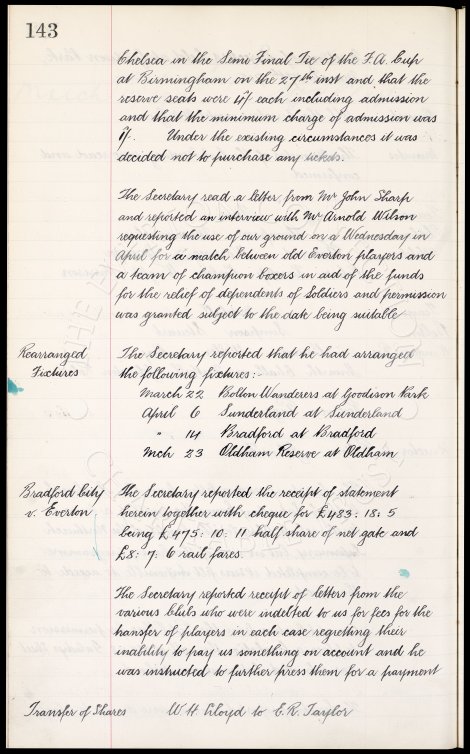 143
Chelsea in the Semi Final Tie of the F.A. Cup
at Birmingham on the 27th inst and that the
reserve seats were 4/- each including admission
and that the minimum charge of admission was
1/-. Under the existing circumstances it was
decided not to purchase any tickets.
The Secretary read a letter from Mr John Sharp
and reported an interview with Mr Arnold Wilson
requesting the use of our ground on a Wednesday in
April for a match between old Everton players and
a team of champion boxers in aid of the funds
for the relief of dependents of Soldiers and permission
was granted subject to the date being suitable
Rearranged
Fixtures
The Secretary reported that he had arranged
the following fixtures:
March 22 Bolton Wanderers at Goodison Park
April 6 Sunderland at Sunderland
" 14 Bradford at Bradford
Mch 23 Oldham Reserve at Oldham
Bradford City
v. Everton
The Secretary reported the receipt of statement
herein together with cheque for £483: 18: 5
being £475: 10: 11 half share of net gate and
£8: 7: 6 rail fares.
The Secretary reported receipt of letters from the
various Clubs who were indebted to us for fees for the
transfer of players in each case regretting their
inability to pay us something on account and he
was instructed to further press them for a payment
Transfer of Shares W. H. Lloyd to C. R. Taylor